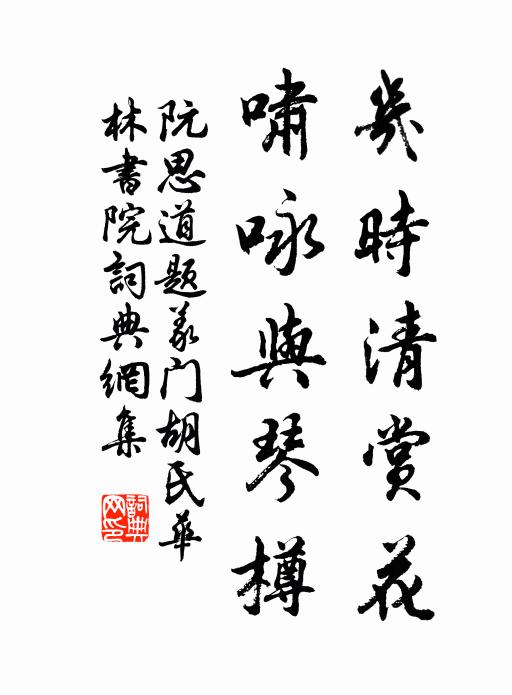 幾時清賞花
嘯咏與琴樽
阮思道題義门胡氏華
林書院詞典網集
詞典网印